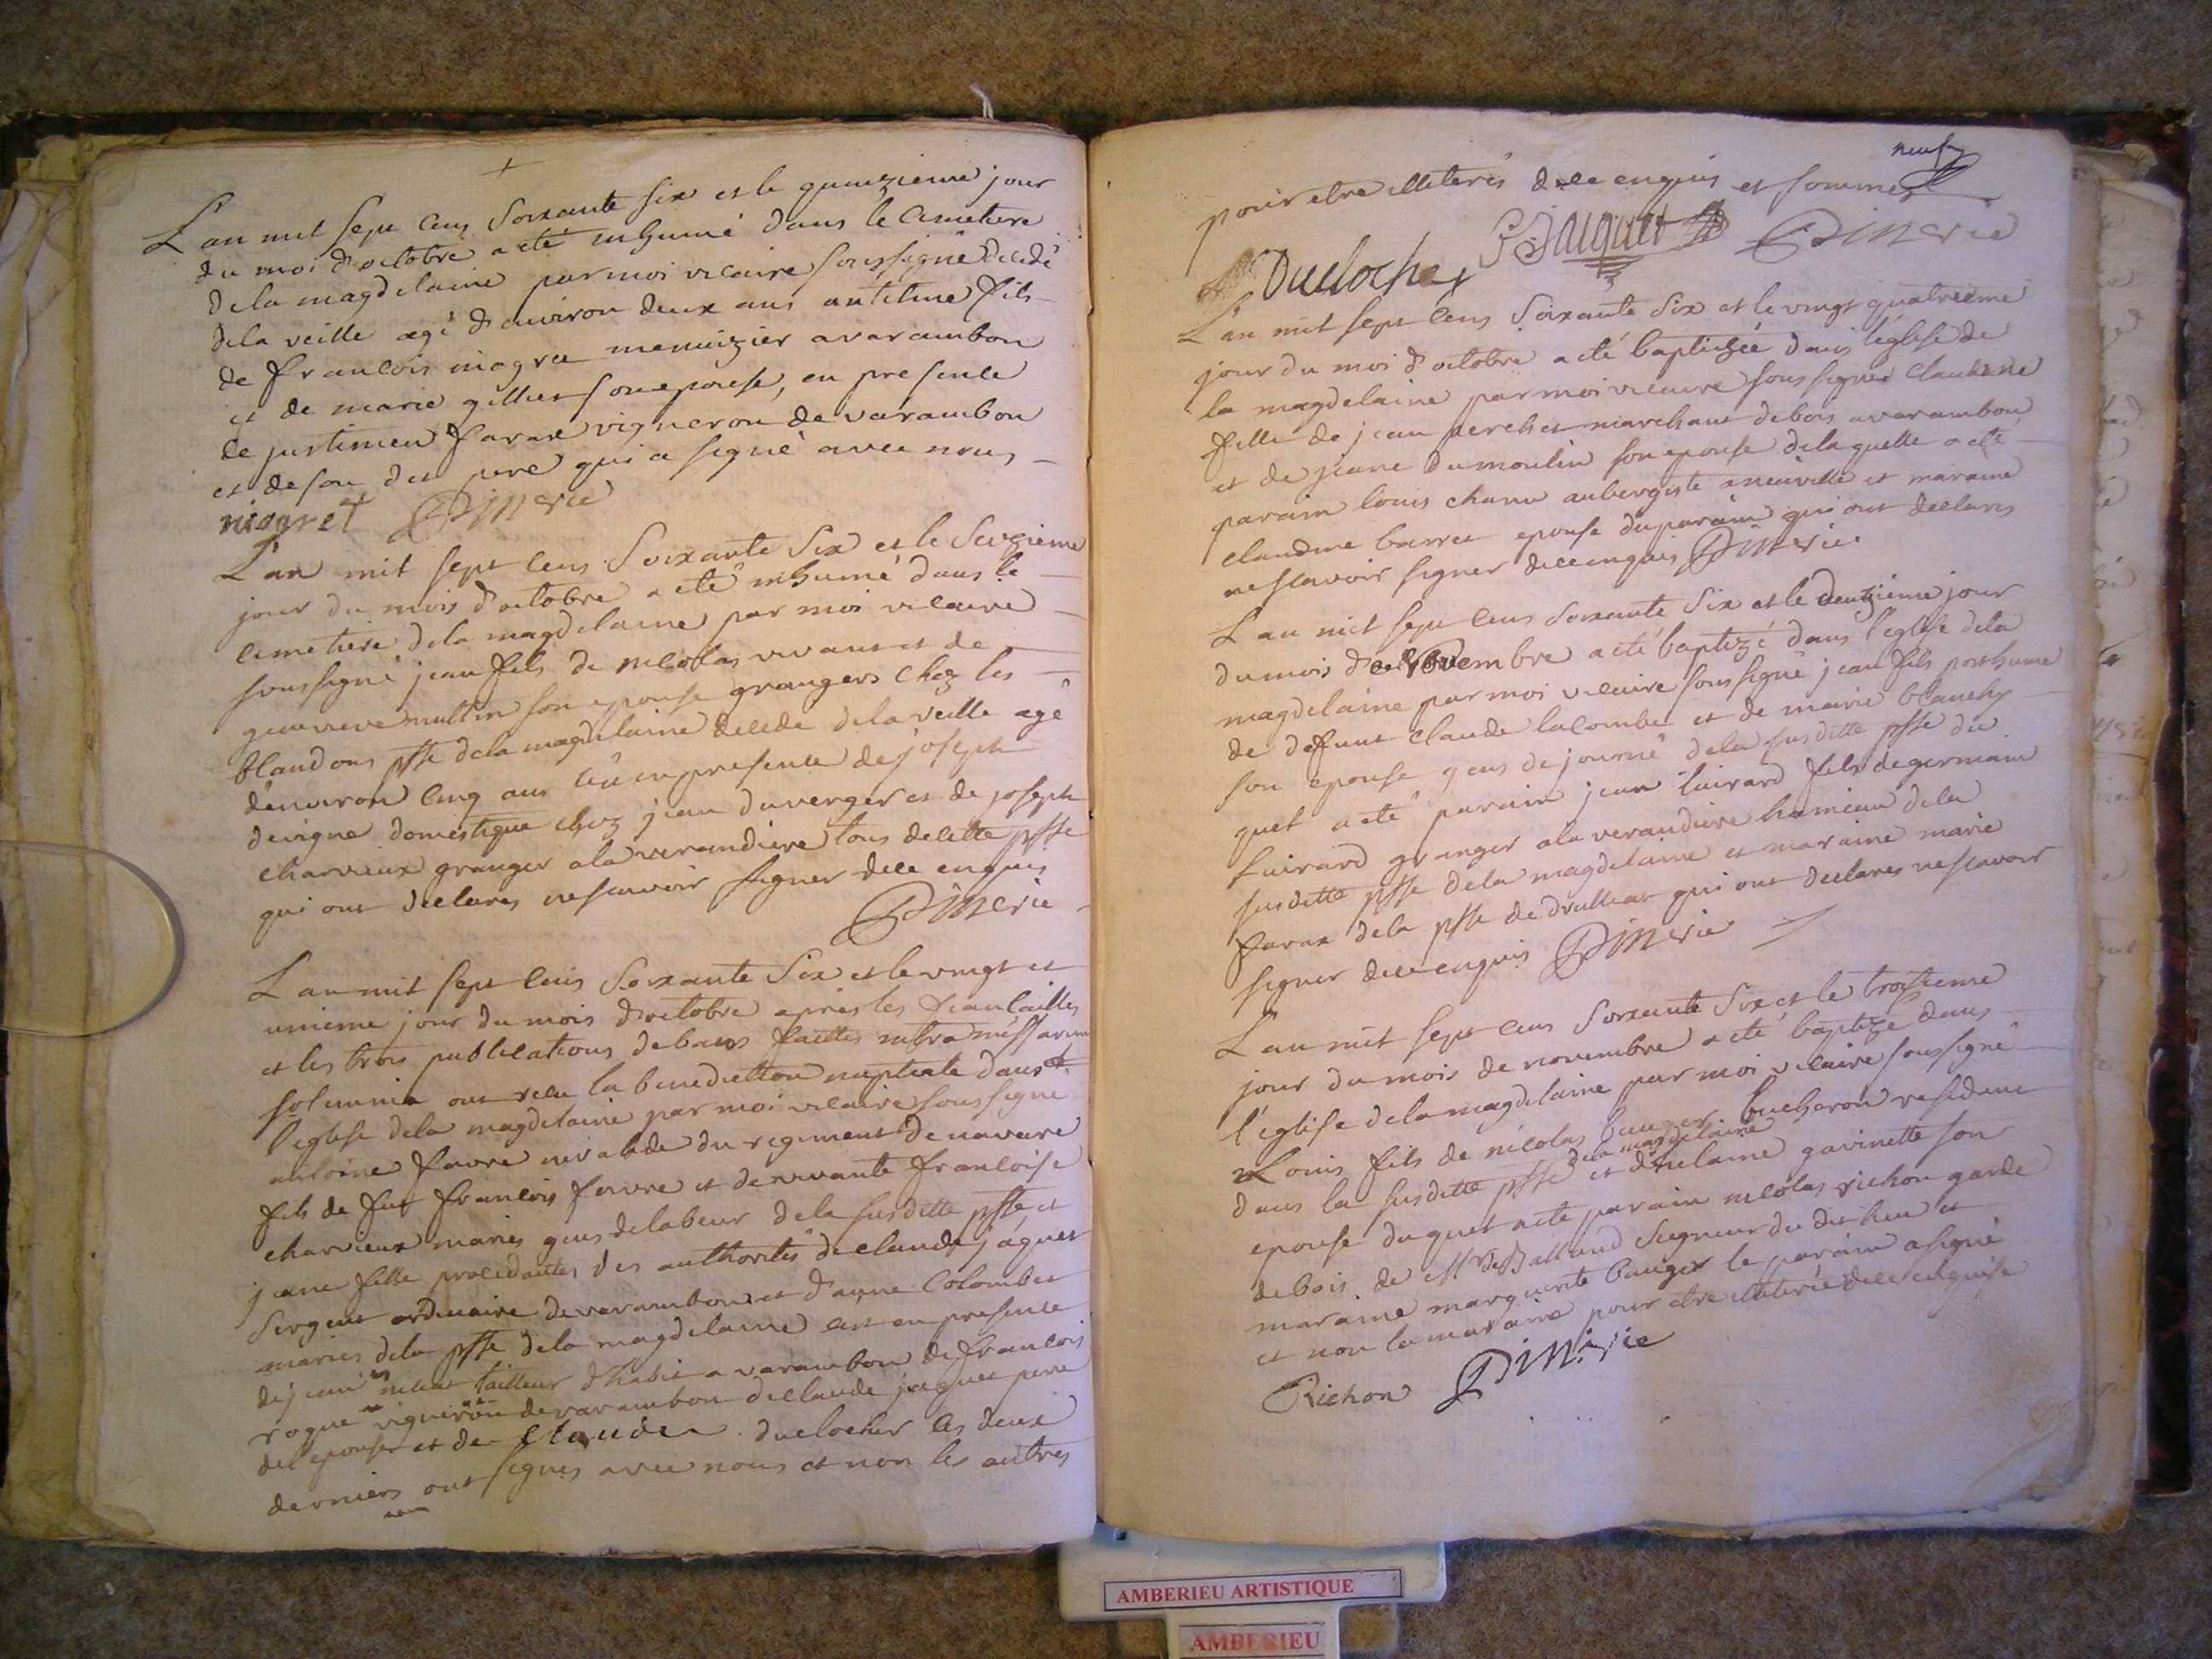 L'an mil sept cens soixante six et le quinzieme jour
du moi d'octobre a eté inhumé dans le cimetiere
de la magdelaine par moi vicaire soussigné decedé
de la veille agé d'environ deux ans antelme fils
de francois niogret menuizier a varambon
et de marie gillier son epouse, en presence
de justinien farax vigneron de varambon
et de son dit pere qui a signé avec nous
niogret Pinerie
L'an mil sept cens soixante six et le seizieme
jour du mois d'octobre a eté inhumé dans le
cimetiere de la magdelaine par moi vicaire
soussigné jean fils de nicolas vivant et de
genevieve son epouse grangers chez les
blandons psse de la magdelaine decedé de la veille agé
d'environ cinq ans en presence de joseph
devigne domestique chez jean duverger et de joseph
charvieux granger a la verandiere tous de cette psse
qui ont declares ne scavoir signer de ce enquis
Pinerie
L'an mil sept cens soixante six et le vingt et
unieme jour du mois d'octobre apres les fiancailles
et les trois publications de bans faittes intra missarum
solemnia ont recu la benediction nuptiale dans
l'eglise de la magdelaine par moi vicaire soussigné
antoine favre invalide du regiment de navare
fils de fut francois favre et de vivante francoise
charvieux mariés gens de labeur de la susditte psse et
jeane fille procedantes des authorités de claude jaquet
sergent ordinaire de varambon et d'anne colombet
mariés de la psse de la magdelaine en presence
de jean tailleur d'habit a varambon de francois
vigneron de varambon de claude jaquet pere
de l'epouse et de claude duclocher les deux
derniers ont signés avec nous et non les autres
neuf
pour etre illiterés de ce enquis et sommes
Duclocher Jaquet Pinerie
L'an mil sept cens soixante six et le vingt quatrieme
jour du moi d'octobre a eté baptizée dans l'eglise de
la magdelaine par moi vicaire soussigné claudine
fille de jean perchet marchant de bois a varambon
et de jeane dumoulin son epouse de laquelle a eté
parain louis chanu aubergiste a neuville et maraine
claudine barret epouse du parain qui ont declares
ne scavoir signer de ce enquis Pinerie
L'an mil sept cens soixante six et le deuzieme jour
du mois de novembre a eté baptizé dans l'eglise de la
magdelaine par moi vicaire soussigné jean fils posthume
de deffunt claude lacombe et de marie blanchy
son epouse gens de journé de la susditte psse du
quel a eté parain jean luirard fils de germain
luirard granger a la verandiere hameau de la
susditte psse de la magdelaine et maraine marie
farax de la psse de druillat qui ont declares ne scavoir
signer de ce enquis Pinerie
L'an mil sept cens soixante six et le troisieme
jour du mois de novembre a eté baptizé dans
l'eglise de la magdelaine par moi vicaire soussigné
Louis fils de nicolas bauger bucheron resident
de la magdelaine
dans la susditte psse et d'helaine gavinette son
epouse duquel a eté parain nicolas richon garde
de bois de Mr de Balland seigneur du dit lieu et
maraine marguerite bauger le parain a signé
et non la maraine pour etre illiterée de ce enquise
Richon Pinerie
AMBERIEU ARTISTIQUE
AMBERIEU